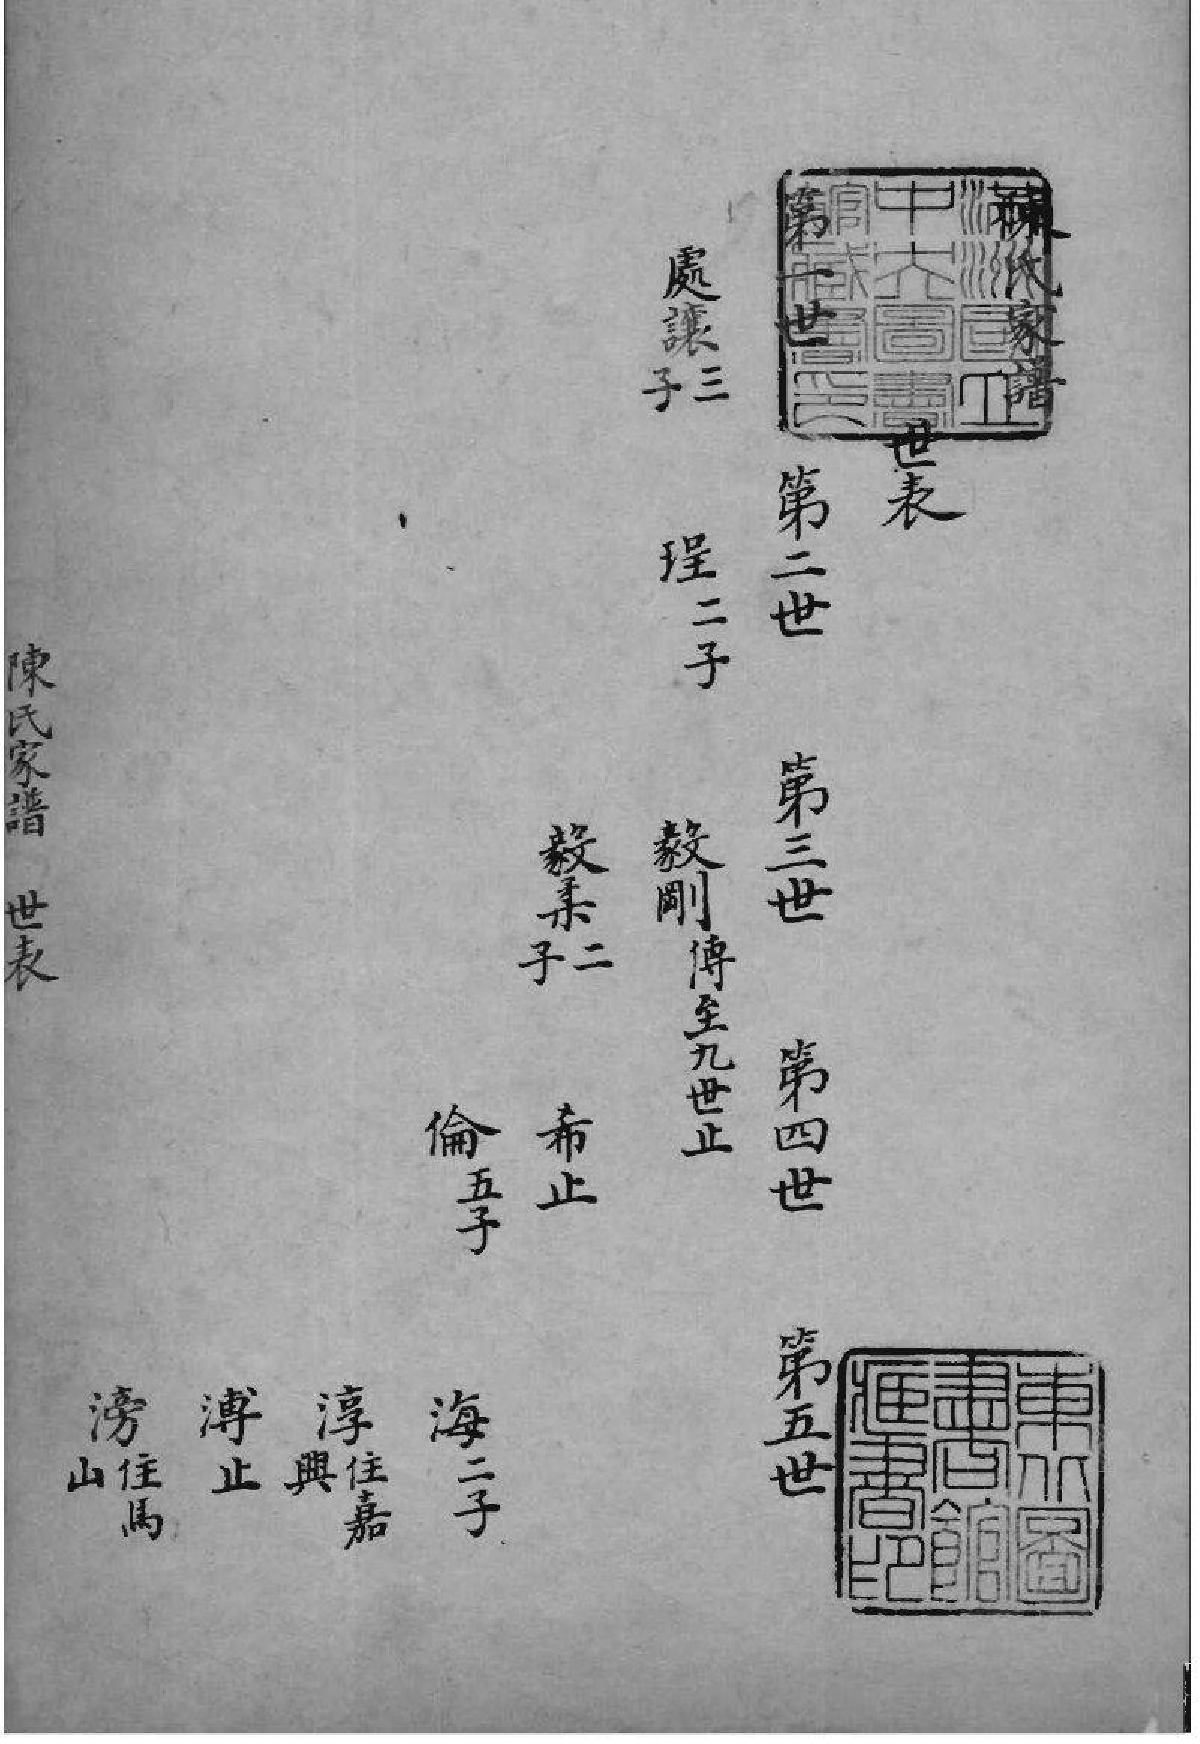 陳氏家譜
世表
第一世 第二世 第三世 第四世 第五世
處讓 三子
珵 二子
毅剛 傳至九世止
毅柔 二子
希止
倫 五子
海 二子
淳 住嘉興
溥止
滂 住馬山
陳氏家譜 世表
東北圖書館藏書印